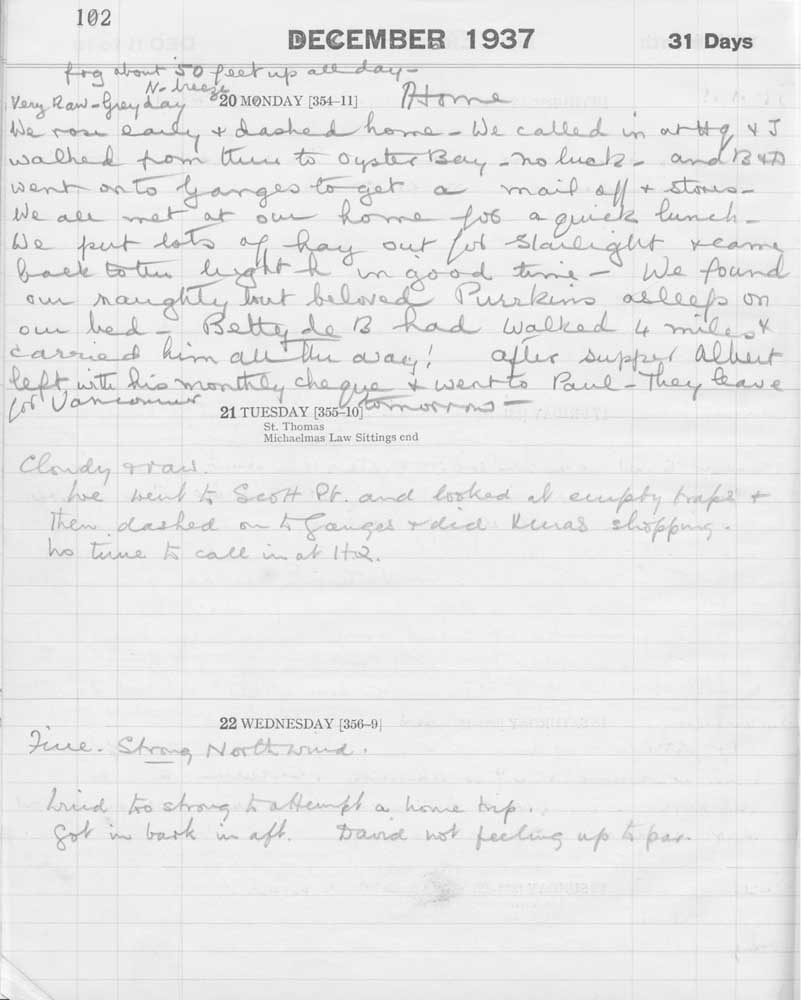 102
DECEMBER 1937 31 Days
fog about 50 feet up all day -
N- breeze
Very Raw - Grey day 20 MONDAY [354-11] Home
We rose early & dashed home - We called in at Hq & I
walked from there to Oyster Bay - no luck - and B & D
went on to Ganges to get a mail off & stores -
We all met at our home for a quick lunch -
We put lots of hay out for Starlight & came
back to the light h in good time - We found
our naughty but beloved Purrkins asleep on
our bed - Betty de B had walked 4 miles &
carried him all the way! after supper Albert
left with his monthly cheque & went to Paul - They leave
for Vancouver tomorrow -
21 TUESDAY [355-10]
St. Thomas
Michaelmas Law Sittings end
Cloudy & raw.
We went to Scott Pt. and looked at empty traps &
then dashed on to Ganges & did Xmas shopping.
No time to call in at HQ.
22 WEDNESDAY [356-9]
Fine. Strong North wind.
Wind too strong to attempt a home trip.
Got in bark in aft. David not feeling up to par.